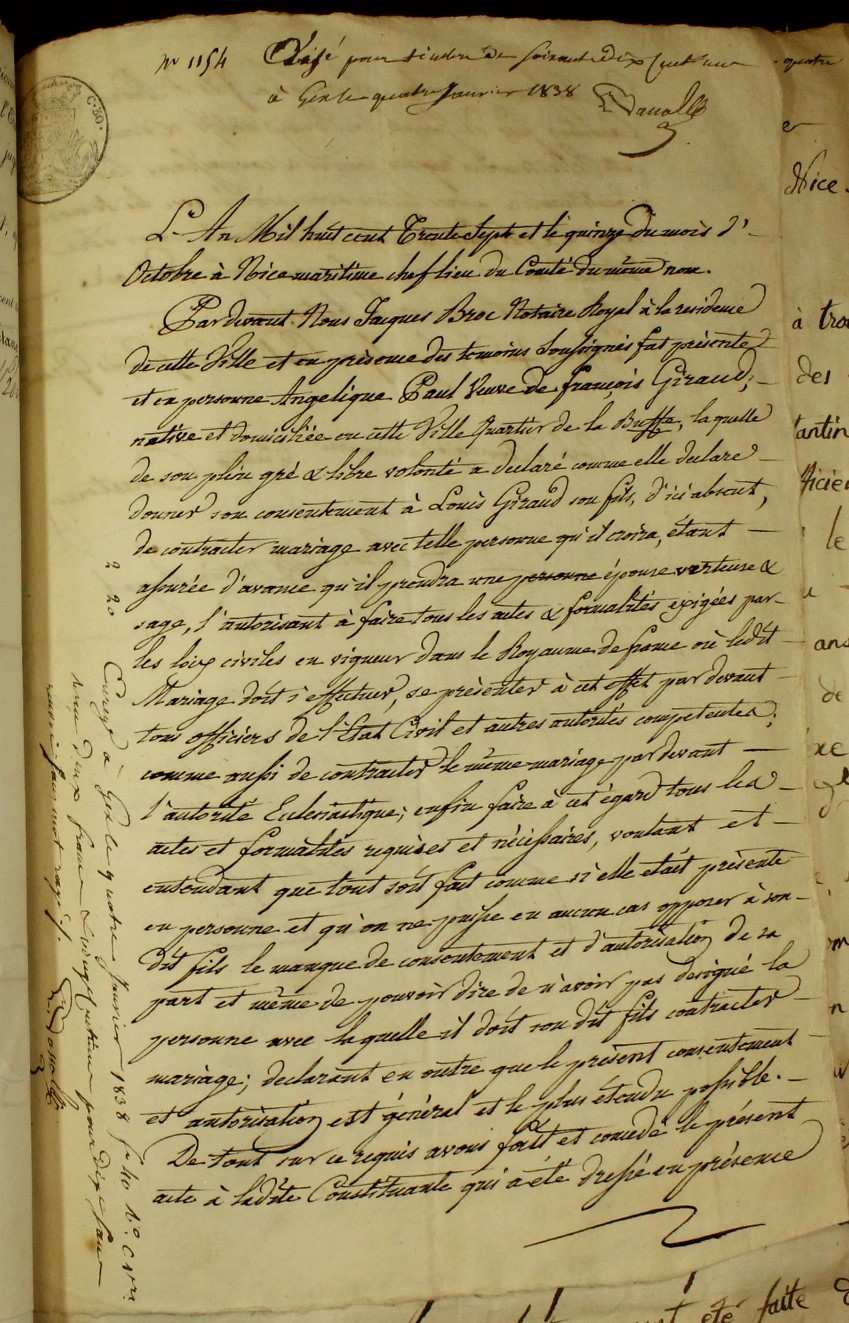 N° 1154 Visé pour timbre de soixante dix
à Gex le quatre Janvier 1838
L'An Mil huit cent Trente Sept et le quinze du mois d'
Octobre à Nice maritime chef lieu du Comté du même nom.
Pardevant Nous Jacques Broc Notaire Royal à la residence
de cette Ville et en présence des temoins Soussignés fut présente
et en personne Angelique Paul Veuve de françois Giraud,
native et domiciliée en cette Ville Quartier de la Buffa, la quelle
de son plein gré & libre volonté a declaré comme elle declare
donner son consentement à Louis Giraud son fils, d'ici absent,
de contracter mariage avec telle personne qu'il croira, étant
assurée d'avance qu'il prendra une personne épouse vertueuse &
sage, l'autorisant à faire tous les actes & formalités exigées par
les loix civiles en vigueur dans le Royaume de france où ledit
Mariage doit s'effectuer, se présenter à cet effet par devant
tous officiers de l'Etat Civil et autres autorités competentes;
comme aussi de contracter le même mariage pardevant
l'autorité Eclesiastique; enfin faire à cet égard tous les
actes et formalités requises et nécessaires, voulant et
entendant que tout soit fait comme si elle etait présente
en personne et qu'on ne puisse en aucun cas opposer à son
dit fils le manque de consentement et d'autorisation de sa
part et même de pouvoir dire de n'avoir pas designé la
personne avec laquelle il doit son dit fils contracter
mariage; declarant en outre que le présent consentement
et autorisation est général et le plus étendu possible.
De tout sur ce requis avons fait et concedé le présent
acte à ladite Constituante qui a été dressé en présence
2 20
à Gex le quatre Janvier 1838 f° 40 R° C
reçu deux francs vingt centimes pour dixième sans
à trou
des
le
été faite